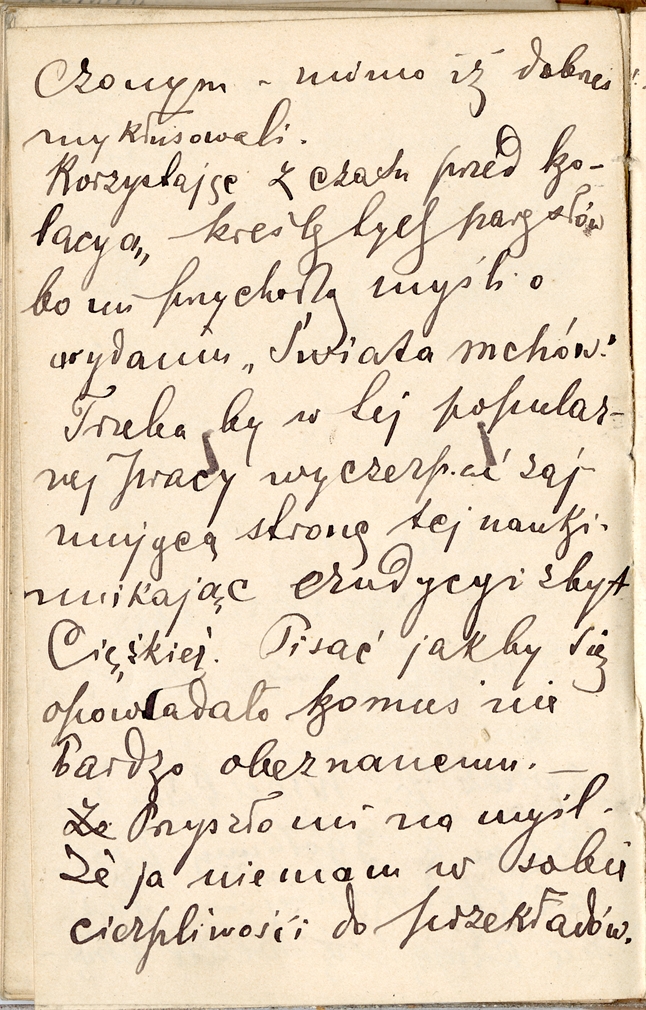 czonym - mimo iż dobrześ
my kłusowali.
Korzystając z czasu przed ko-
lacyą, kreślę tych parę słów
bo mi przychodzą myśli o
wydaniu „Świata mchów."
Trzeba by w tej popular-
nej pracy wyczerpać zaj-
mującą stronę tej nauki.
unikając erudycyi zbyt
Ciężkiej. Pisać jakby się
opowiadało komuś nie
bardzo obeznanemu. —
Że Przyszło mi na myśl.
Że ja niemam w sobie
cierpliwości do przekładów.